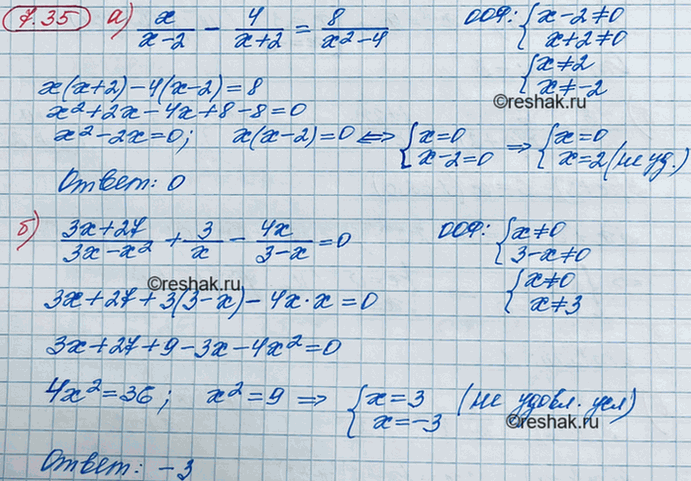 7.35 а) x/(x-2) - 4/(x+2) = 8/(x²-4) ООФ: { x-2≠0
x+2≠0
{ x≠2
x≠-2
©reshak.ru
x(x+2)-4(x-2)=8
x²+2x-4x+8-8=0
x²-2x=0; x(x-2)=0 ⇔ { x=0 ⇒ { x=0
x-2=0 x=2 (не уд.)
Ответ: 0
©reshak.ru
б) (3x+27)/(3x-x²) + 3/x - 4x/(3-x) = 0 ООФ: { x≠0
3-x≠0
{ x≠0
x≠3
©reshak.ru
3x+27+3(3-x)-4x·x=0
3x+27+9-3x-4x²=0
4x²=36; x²=9 ⇒ { x=3 (не удовл. усл)
x=-3
©reshak.ru
Ответ: -3